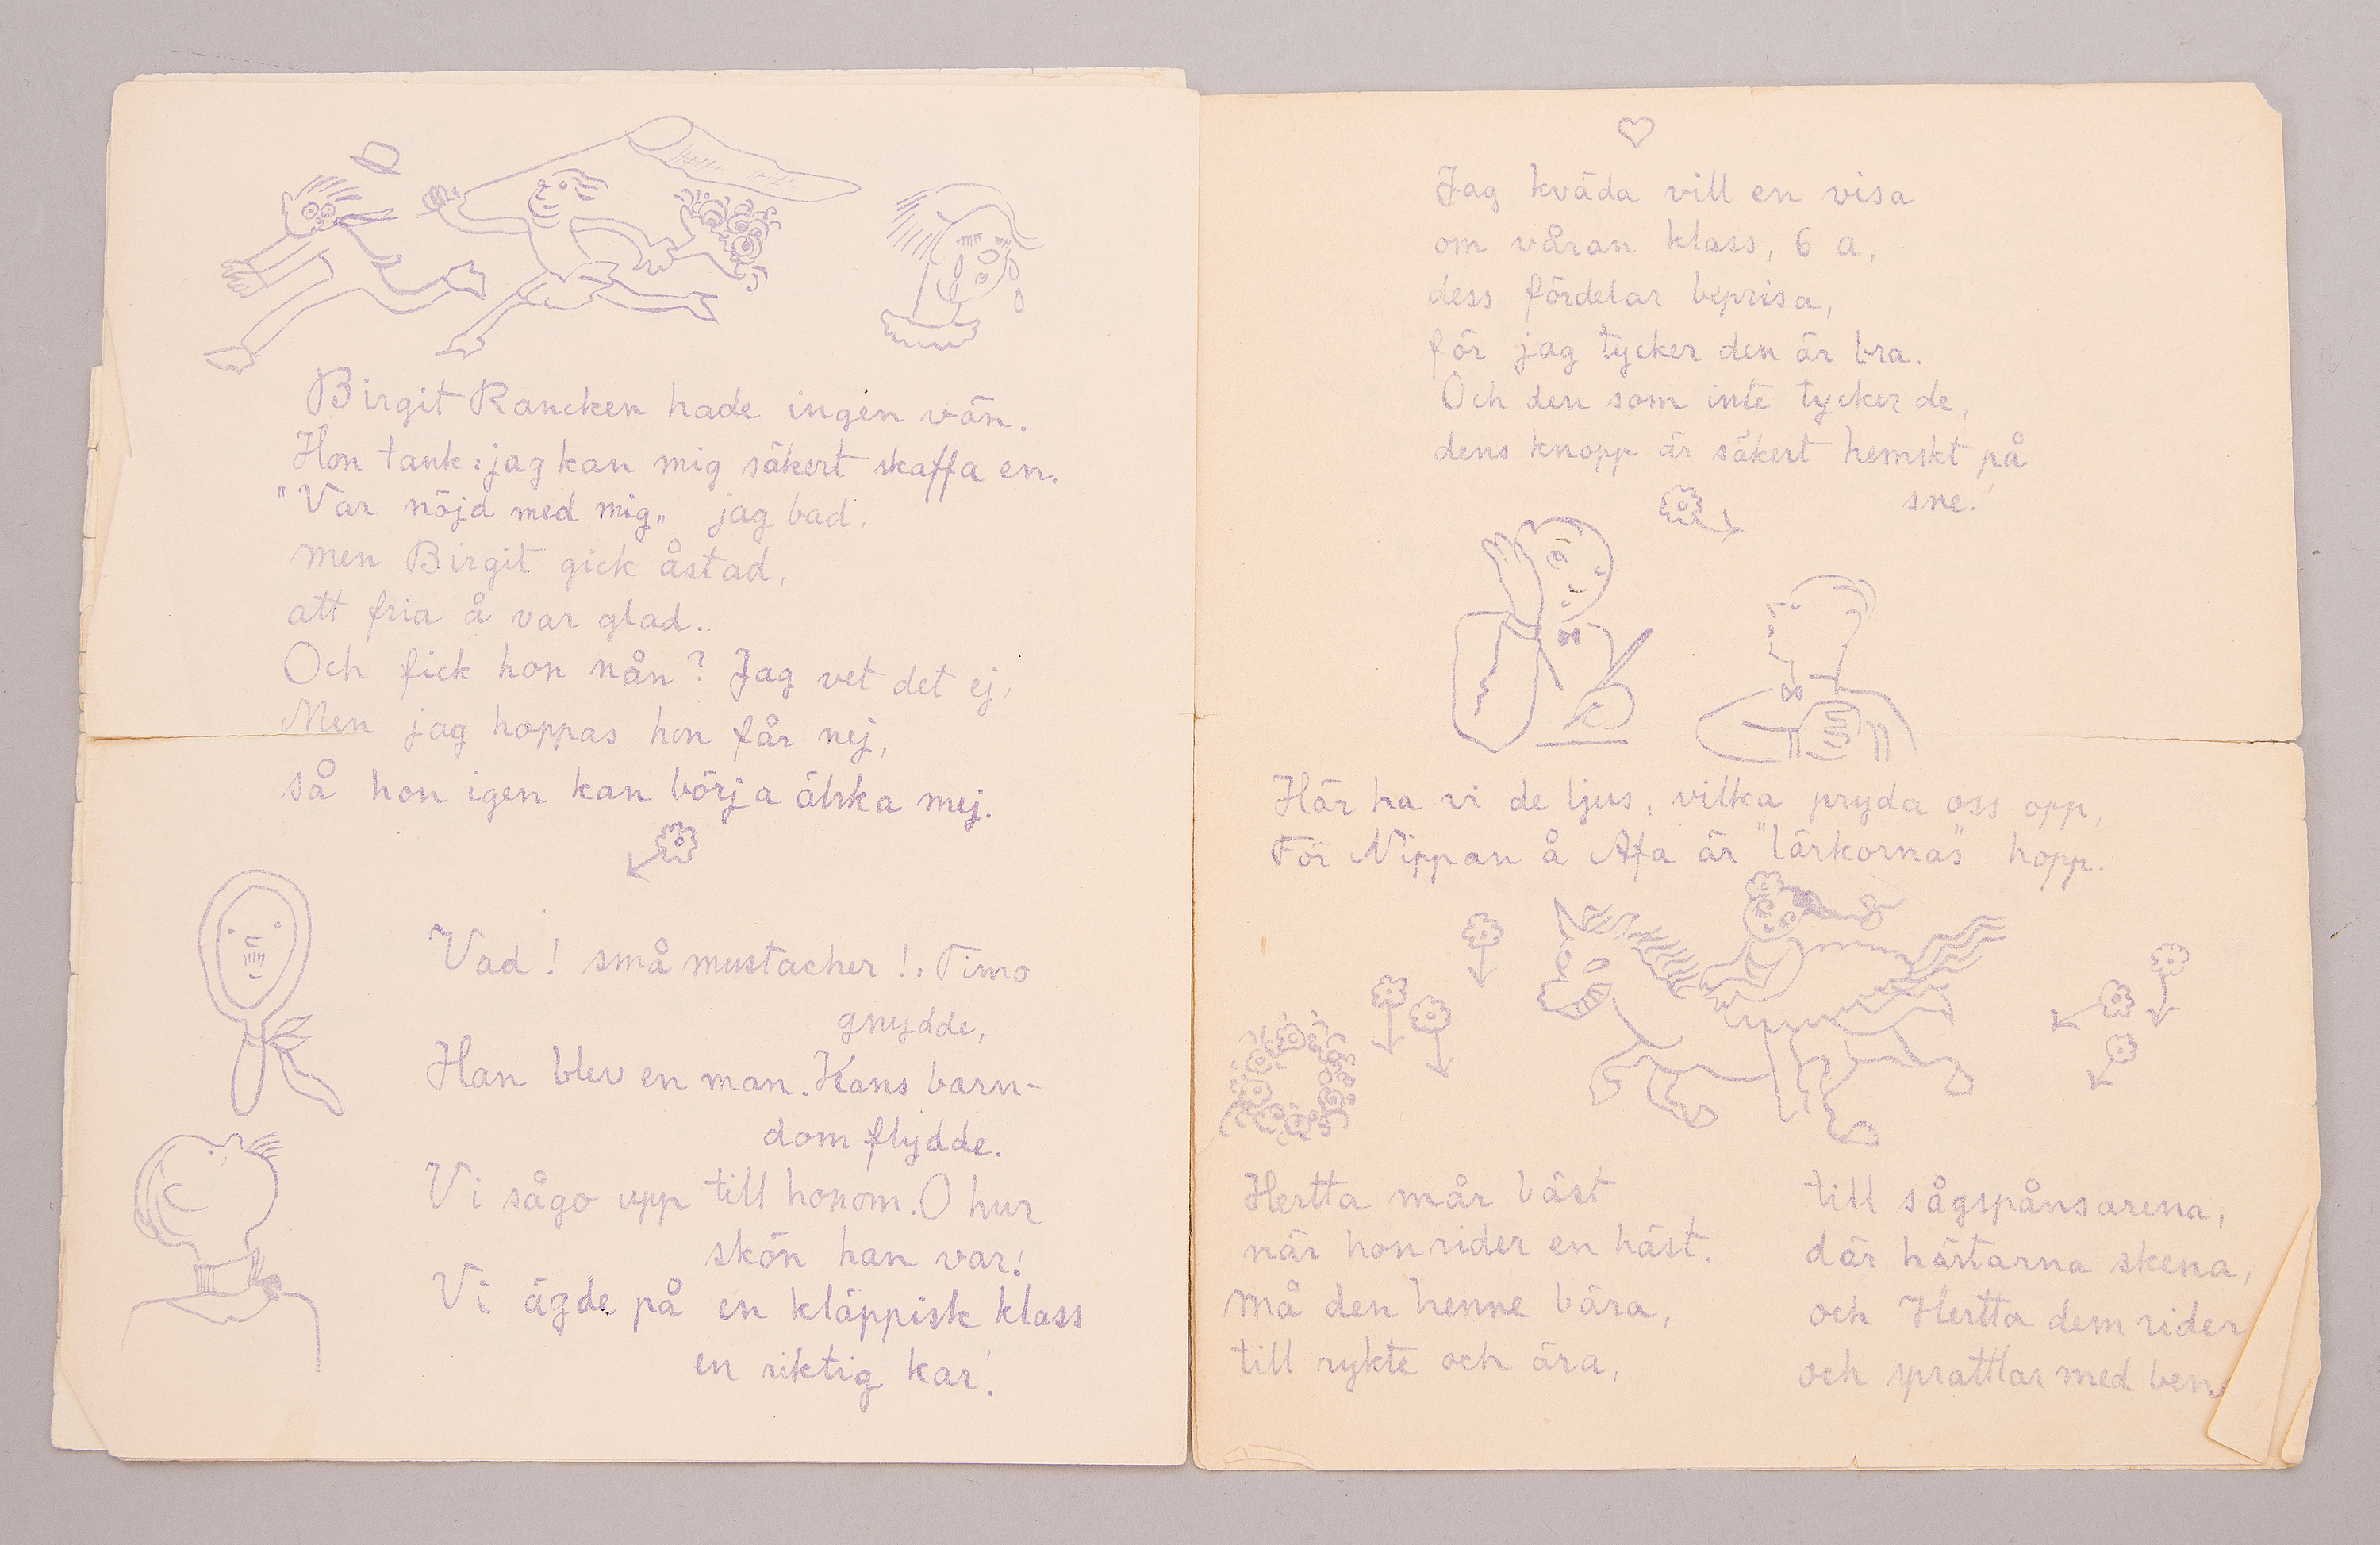 Birgit Rancken hade ingen vän.
Hon tänk: jag kan mig säkert skaffa en.
"Var nöjd med mig" jag bad.
men Birgit gick åstad,
att fria å var glad.
Och fick hon nån? Jag vet det ej,
Men jag hoppas hon får nej,
så hon igen kan börja älska mej.
Vad! små mustacher!. Timo
gnydde,
Han blev en man. Hans barn-
dom flydde.
Vi sågo upp till honom. O hur
skön han var!
Vi ägde på en kläppisk klass
en riktig kar!
Jag kväda vill en visa
om våran klass, 6 a,
dess fördelar beprisa,
för jag tycker den är bra.
Och den som inte tycker de,
dens knopp är säkert hemskt på
sne!
Här ha vi de ljus, vilka pryda oss opp,
För Nippan å Afa är "lärkornas" hopp.
Hertta mår bäst
när hon rider en häst.
må den henne bära,
till rykte och ära,
till sågspånsarena,
där hästarna skena,
och Hertta dem rider
och sprattlar med ben